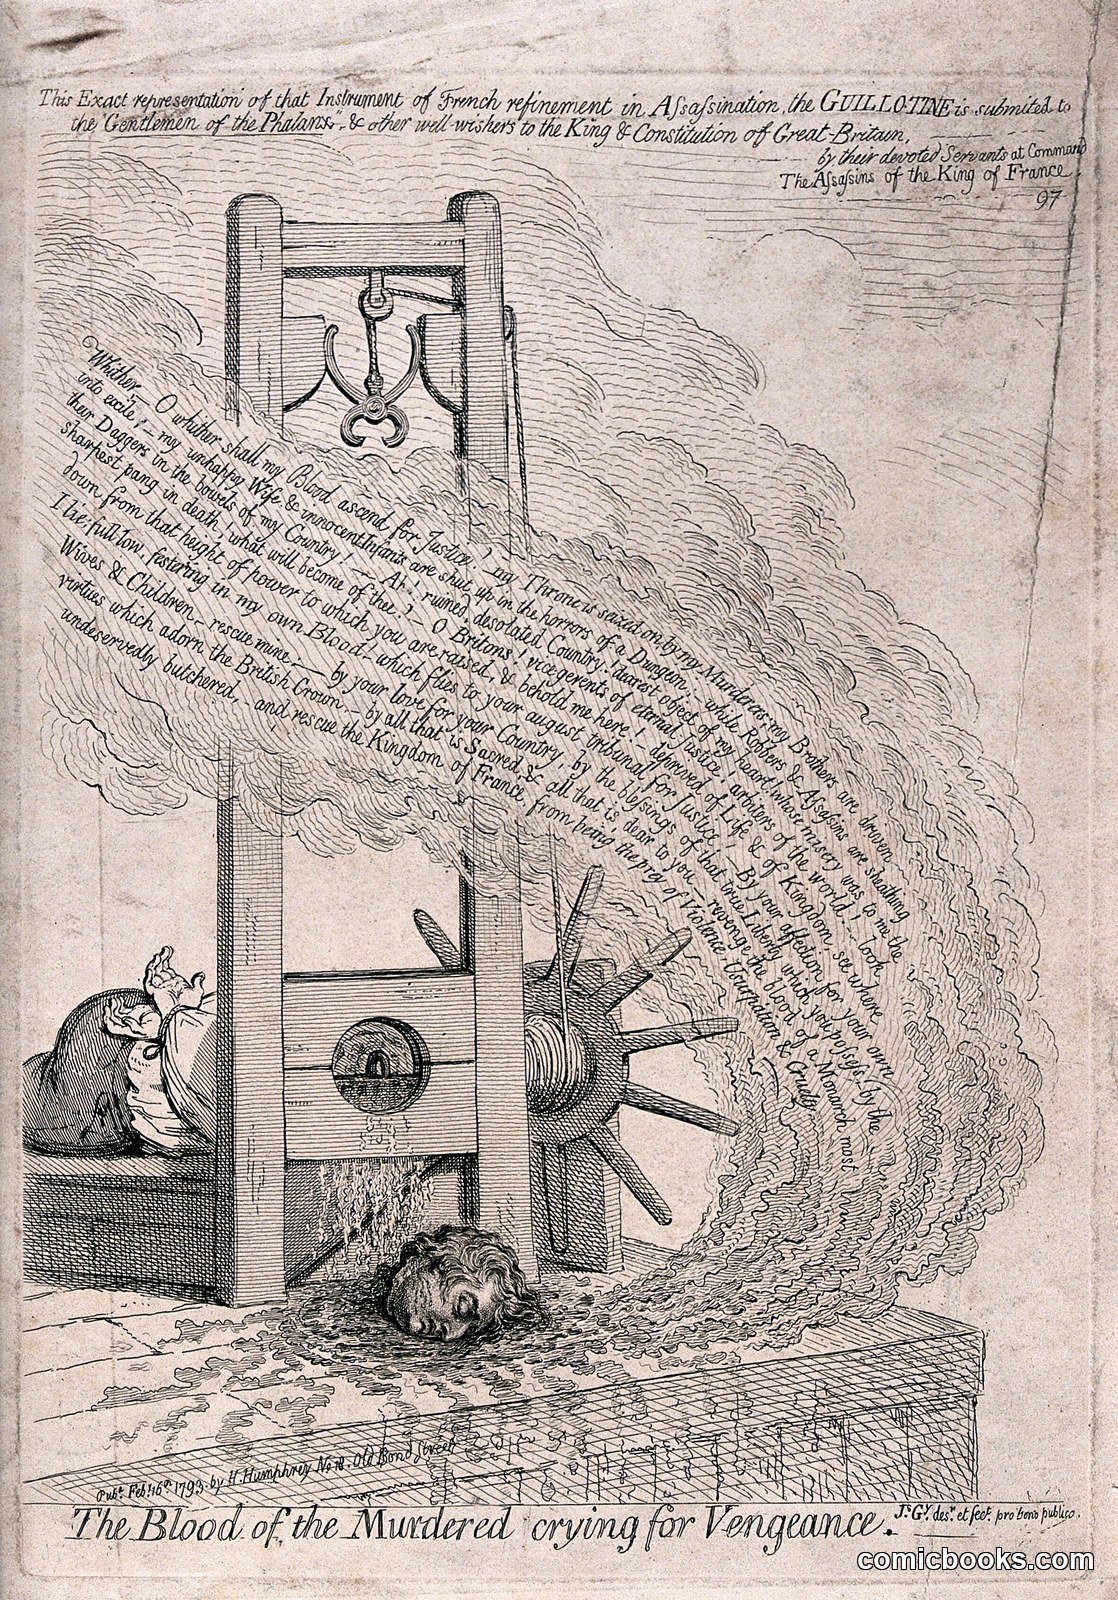 This Exact representation of that Instrument of French refinement in Aſsaſsination, the GUILLOTINE is submited to
the "Gentlemen of the Phalanx", & other well-wishers to the King & Constitution of Great-Britain,
by their devoted Servants at Command
The Aſsaſsins of the King of France
97
Whither,_ O whither shall my Blood ascend for Justice! _ my Throne is seized on by my Murderers, my Brothers are driven
into exile, _ my unhappy Wife & innocent Infants are shut up in the horrors of a Dungeon: _ while Robbers & Aſsaſsins are sheathing
their Daggers in the bowels of my Country! _ Ah! ruined, desolated Country! dearest object of my heart! whose misery was to me the
sharpest pang in death, what will become of thee? _ O Britons! vicegerents of eternal Justice! arbiters of the world! _ look
down from that height of power to which you are raised, & behold me here! _ deprived of Life & of Kingdom, see where
I lie; full low, festering in my own Blood! which flies to your august tribunal for Justice! _ By your affection for your own
Wives & Children _ rescue mine: _ by your love for your Country, by the bleſsings of that true Liberty which you poſseſs, _ by the
virtues which adorn the British Crown, _ by all that is Sacred, & all that is dear to you _ revenge the blood of a Monarch most
undeservedly butchered, _ and rescue the Kingdom of France, from being the prey of Violence Usurpation & Cruelty
Pubd. Feby. 16th. 1793. by H. Humphrey No. 18. Old Bond Street
The Blood of the Murdered crying for Vengeance.
Js. Gy. desn. et fect. pro bono publico.
comicbooks.com